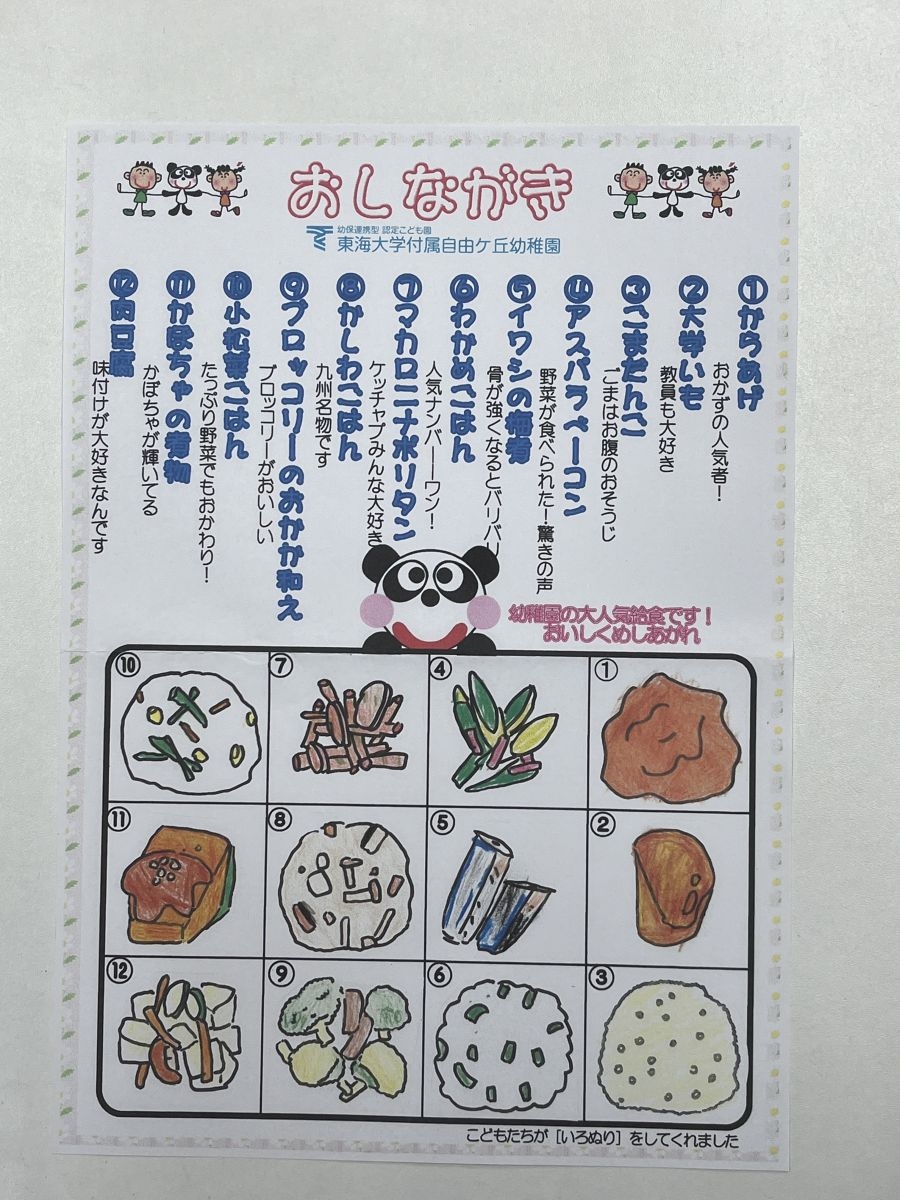 おしながき
幼保連携型 認定こども園
東海大学付属自由ケ丘幼稚園
①からあげ
おかずの人気者！
②大学いも
教員も大好き
③ごまだんご
ごまはお腹のおそうじ
④アスパラベーコン
野菜が食べられた！驚きの声
⑤イワシの梅煮
骨が強くなるとバリバリ
⑥わかめごはん
人気ナンバーワン！
⑦マカロニナポリタン
ケッチャプみんな大好き
⑧かしわごはん
九州名物です
⑨ブロッコリーのおかか和え
ブロッコリーがおいしい
⑩小松菜ごはん
たっぷり野菜でもおかわり！
⑪かぼちゃの煮物
かぼちゃが輝いてる
⑫肉豆腐
味付けが大好きなんです
幼稚園の大人気給食です！
おいしくめしあがれ
⑩
⑦
④
①
⑪
⑧
⑤
②
⑫
⑨
⑥
③
こどもたちが［いろぬり］をしてくれました